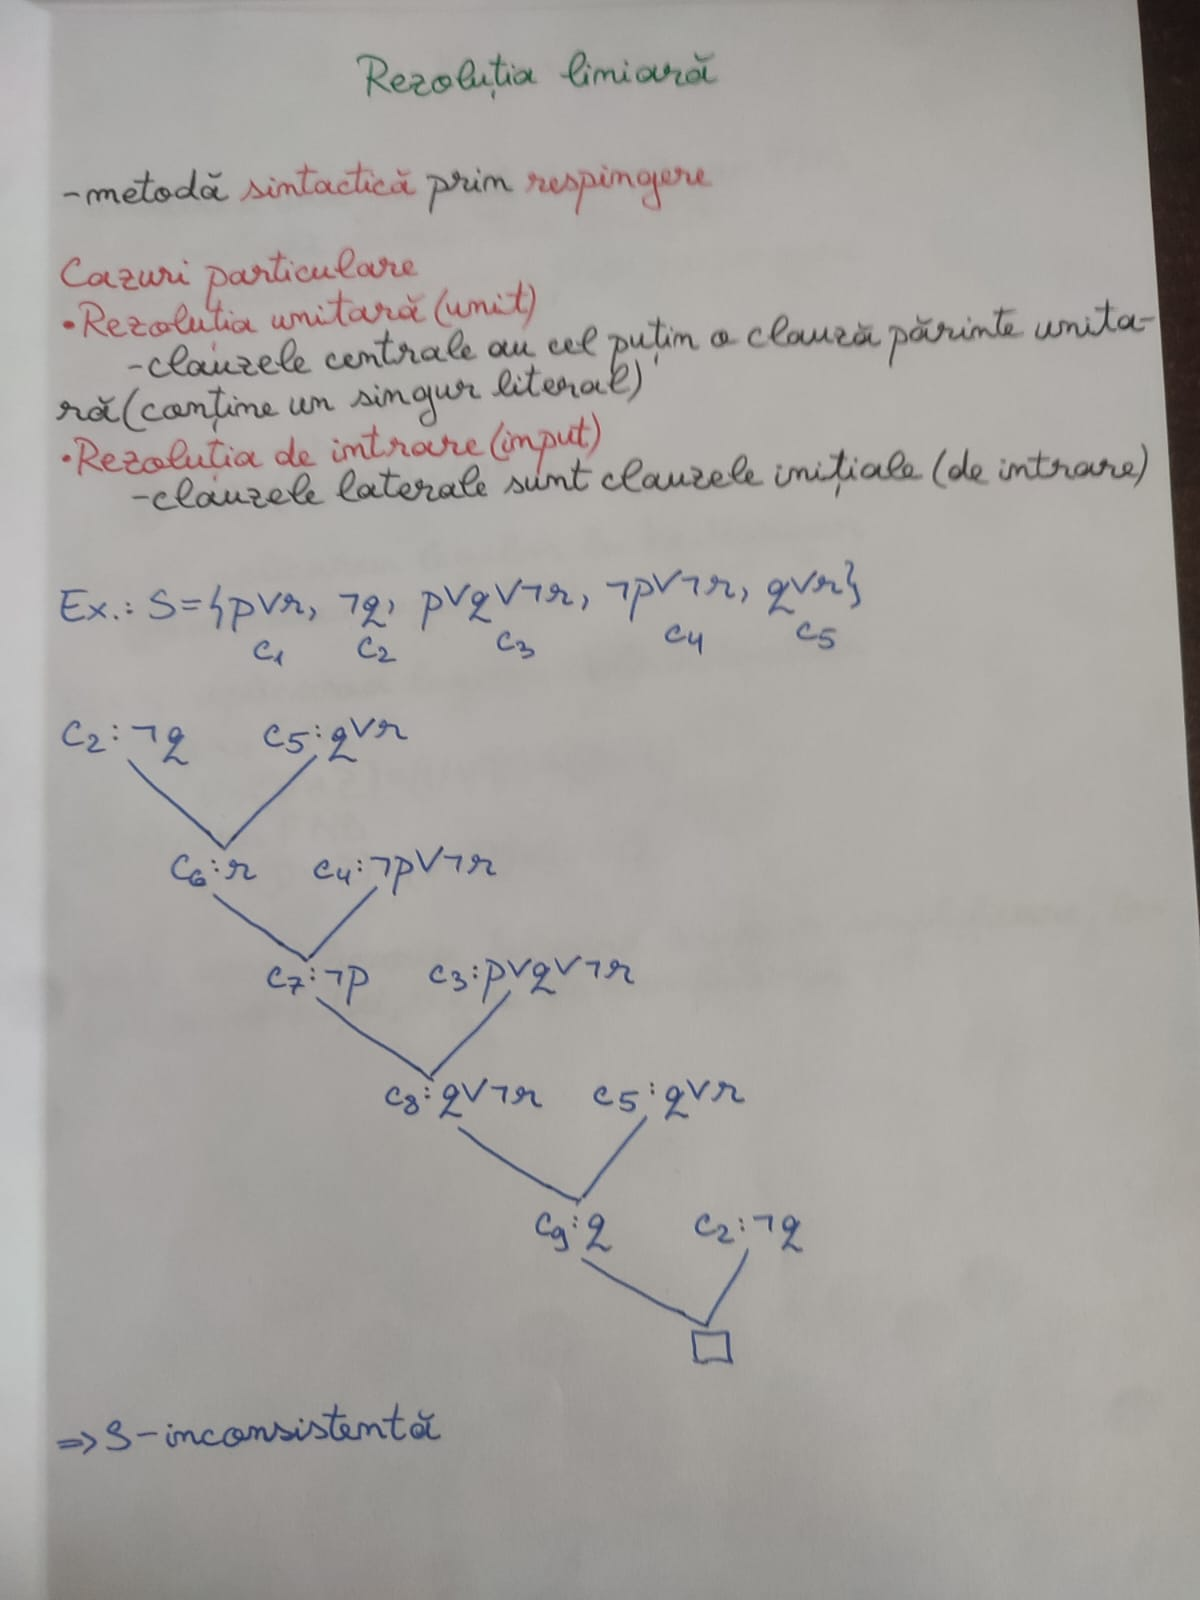 Rezoluția liniară
-metodă sintactică prin respingere
Cazuri particulare
•Rezoluția unitară (unit)
-clauzele centrale au cel puțin o clauză părinte unita-
ră (conține un singur literal)
•Rezoluția de intrare (input)
-clauzele laterale sunt clauzele inițiale (de intrare)
Ex.: S={p∨r, ¬q, p∨q∨¬r, ¬p∨¬r, q∨r}
C1 C2 C3 C4 C5
C2:¬q C5:q∨r
C6:r C4:¬p∨¬r
C7:¬p C3:p∨q∨¬r
C8:q∨¬r C5:q∨r
C9:q C2:¬q
□
⇒ S-inconsistentă